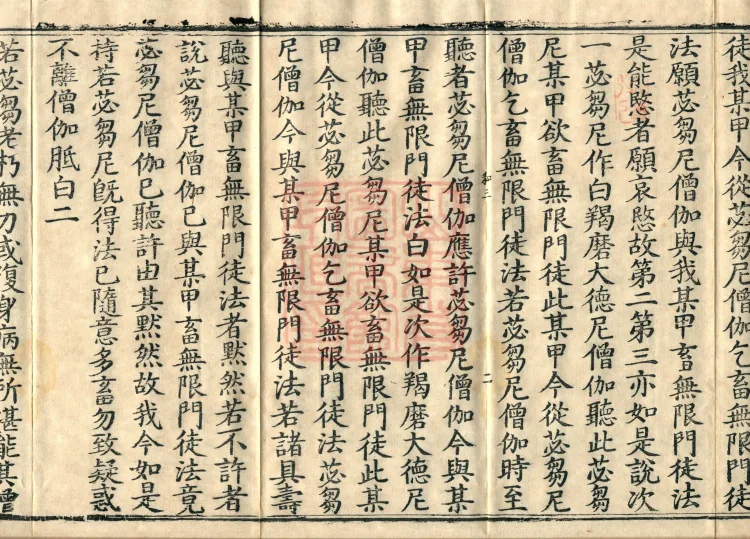 徒我某甲今從苾芻尼僧伽乞畜無限門徒
法願苾芻尼僧伽與我某甲畜無限門徒法
是能愍者願哀愍故第二第三亦如是說次
一苾芻尼作白羯磨大德尼僧伽聽此苾芻
尼某甲欲畜無限門徒此某甲今從苾芻尼
僧伽乞畜無限門徒法若苾芻尼僧伽時至
和三
二
聽者苾芻尼僧伽應許苾芻尼僧伽今與某
甲畜無限門徒法白如是次作羯磨大德尼
僧伽聽此苾芻尼某甲欲畜無限門徒此某
甲今從苾芻尼僧伽乞畜無限門徒法苾芻
尼僧伽今與某甲畜無限門徒法若諸具壽
聽與某甲畜無限門徒法者默然若不許者
說苾芻尼僧伽已與某甲畜無限門徒法竟
苾芻尼僧伽已聽許由其默然故我今如是
持若苾芻尼旣得法已隨意多畜勿致疑惑
不離僧伽胝白二
若苾芻老朽無力或復身病無所堪能其僧